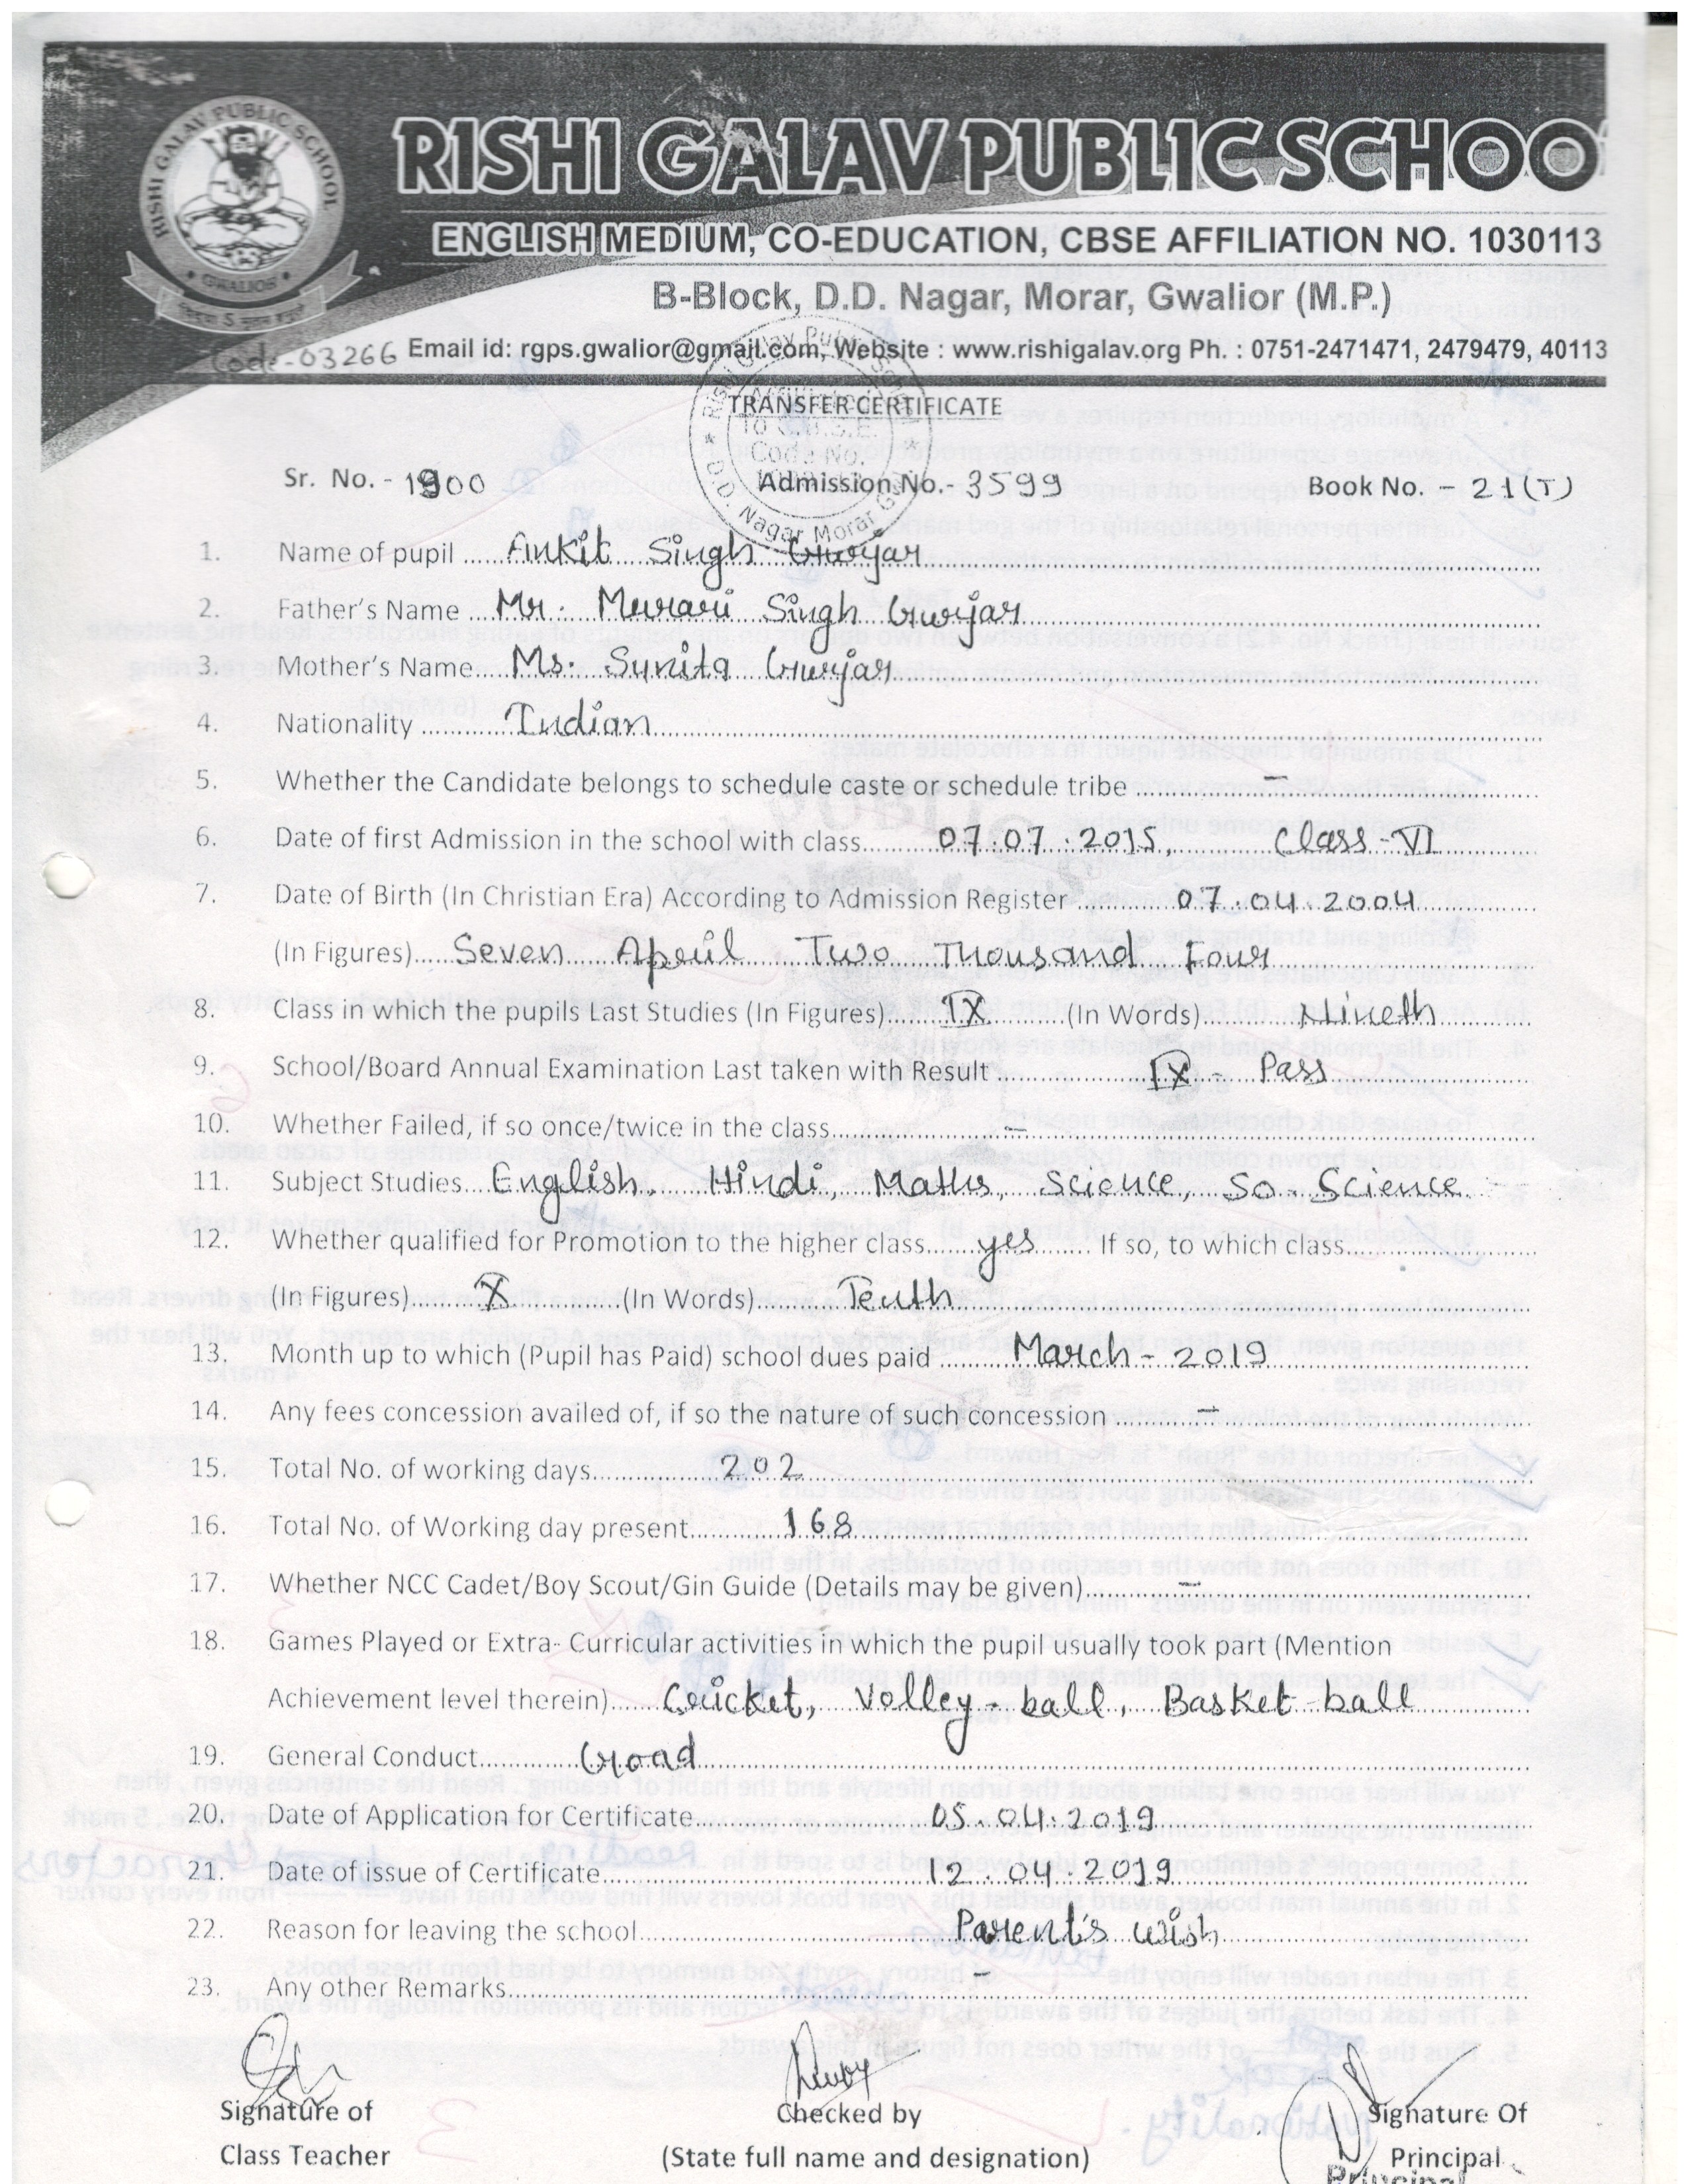 RISHI GALAV PUBLIC SCHOOL
GWALIOR
RISHI GALAV PUBLIC SCHOO
ENGLISH MEDIUM, CO-EDUCATION, CBSE AFFILIATION NO. 1030113
B-Block, D.D. Nagar, Morar, Gwalior (M.P.)
Code-03266 Email id: rgps.gwalior@gmail.com, Website : www.rishigalav.org Ph. : 0751-2471471, 2479479, 40113
TRANSFER CERTIFICATE
Rishi Galav Public School
To C.B.S.E.
Code No.
D.D. Nagar Morar
Sr. No. - 1900 Admission No.- 3599 Book No. - 21(T)
1. Name of pupil ...... Ankit Singh Gurjar
2. Father's Name ... Mr. Murari Singh Gurjar
3. Mother's Name..... Ms. Sunita Gurjar
4. Nationality ............ Indian
5. Whether the Candidate belongs to schedule caste or schedule tribe ............ -
6. Date of first Admission in the school with class......... 07.07.2015, Class-VI
7. Date of Birth (In Christian Era) According to Admission Register ............ 07.04.2004
(In Figures)..... Seven April Two Thousand Four
8. Class in which the pupils Last Studies (In Figures)....... IX ..........(In Words)......... Nineth
9. School/Board Annual Examination Last taken with Result .................. IX - Pass
10. Whether Failed, if so once/twice in the class................... -
11. Subject Studies... English. Hindi, Maths, Science, So. Science
12. Whether qualified for Promotion to the higher class...... yes ....... If so, to which class............
(In Figures)......... X ............(In Words)......... Tenth
13. Month up to which (Pupil has Paid) school dues paid ......... March - 2019
14. Any fees concession availed of, if so the nature of such concession .......... -
15. Total No. of working days............... 202
16. Total No. of Working day present........... 168
17. Whether NCC Cadet/Boy Scout/Gin Guide (Details may be given)........... -
18. Games Played or Extra- Curricular activities in which the pupil usually took part (Mention
Achievement level therein)..... Cricket, Volley-ball, Basket-ball
19. General Conduct............ Good
20. Date of Application for Certificate............................ 05.04.2019
21. Date of issue of Certificate...................................... 12.04.2019
22. Reason for leaving the school..................................... Parent's wish
23. Any other Remarks..................................... -
Signature of Checked by Signature Of
Class Teacher (State full name and designation) Principal
Principal